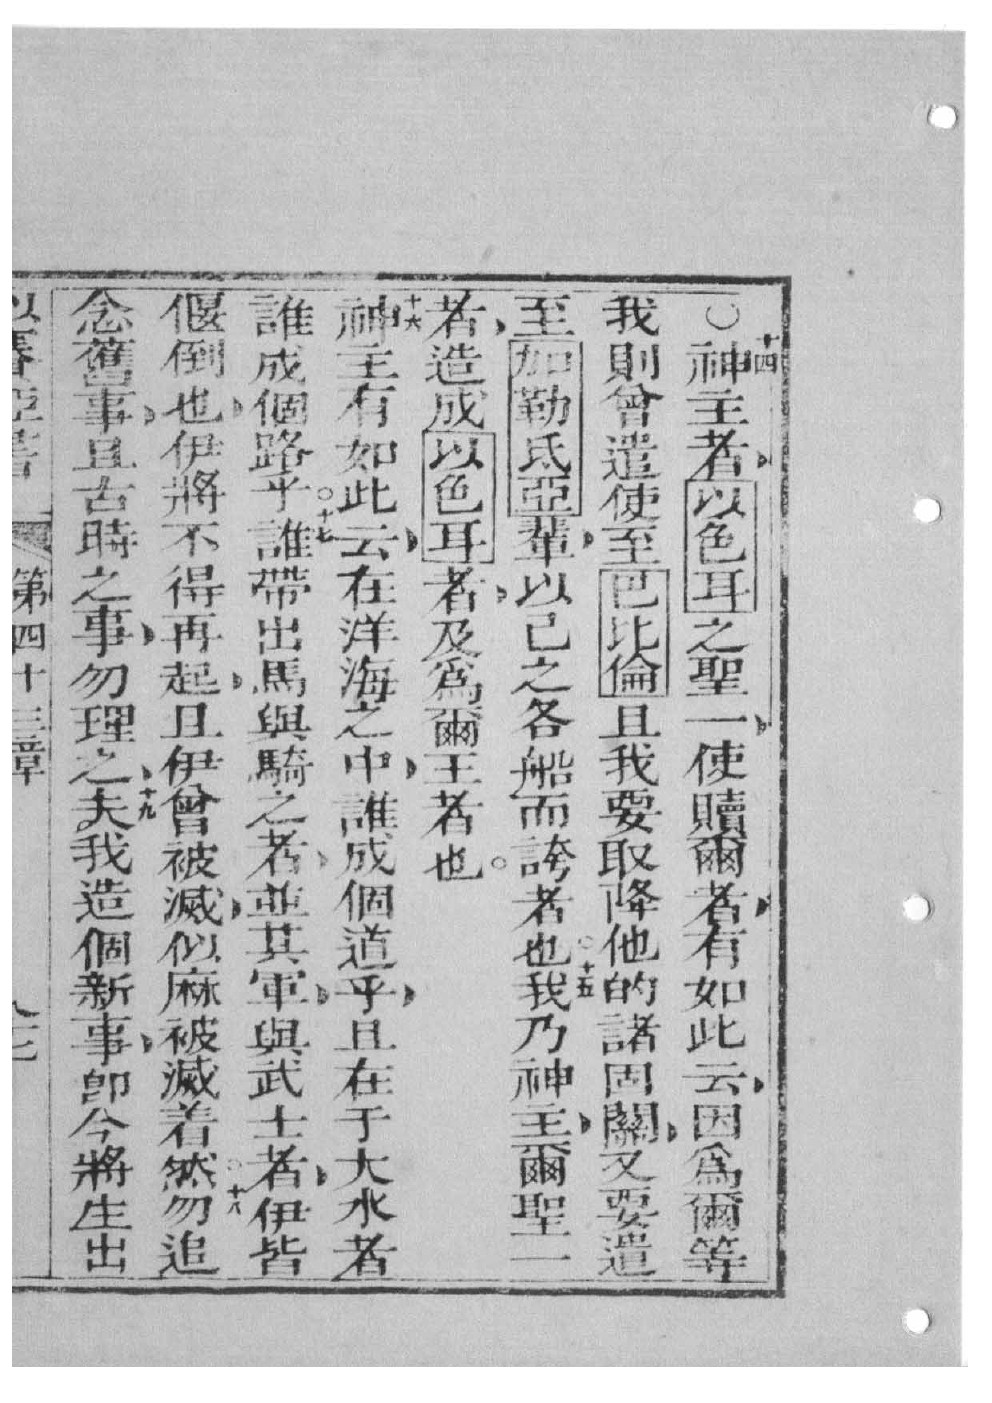 ○十四神主者以色耳之聖一使贖爾者有如此云因為爾等
我則曾遣使至巴比倫且我要取降他的諸固關又要遣
至加勒氐亞輩以己之各船而誇者也○十五我乃神主爾聖一
者造成以色耳者及為爾王者也。
十六神主有如此云在洋海之中誰成個道乎且在于大水者
誰成個路乎○十七誰帶出馬與騎之者並其軍與武士者伊皆
偃倒也伊將不得再起且伊曾被滅似麻被滅着然○十八勿追
念舊事且古時之事勿理之十九夫我造個新事即今將生出
以賽亞書 第四十三章